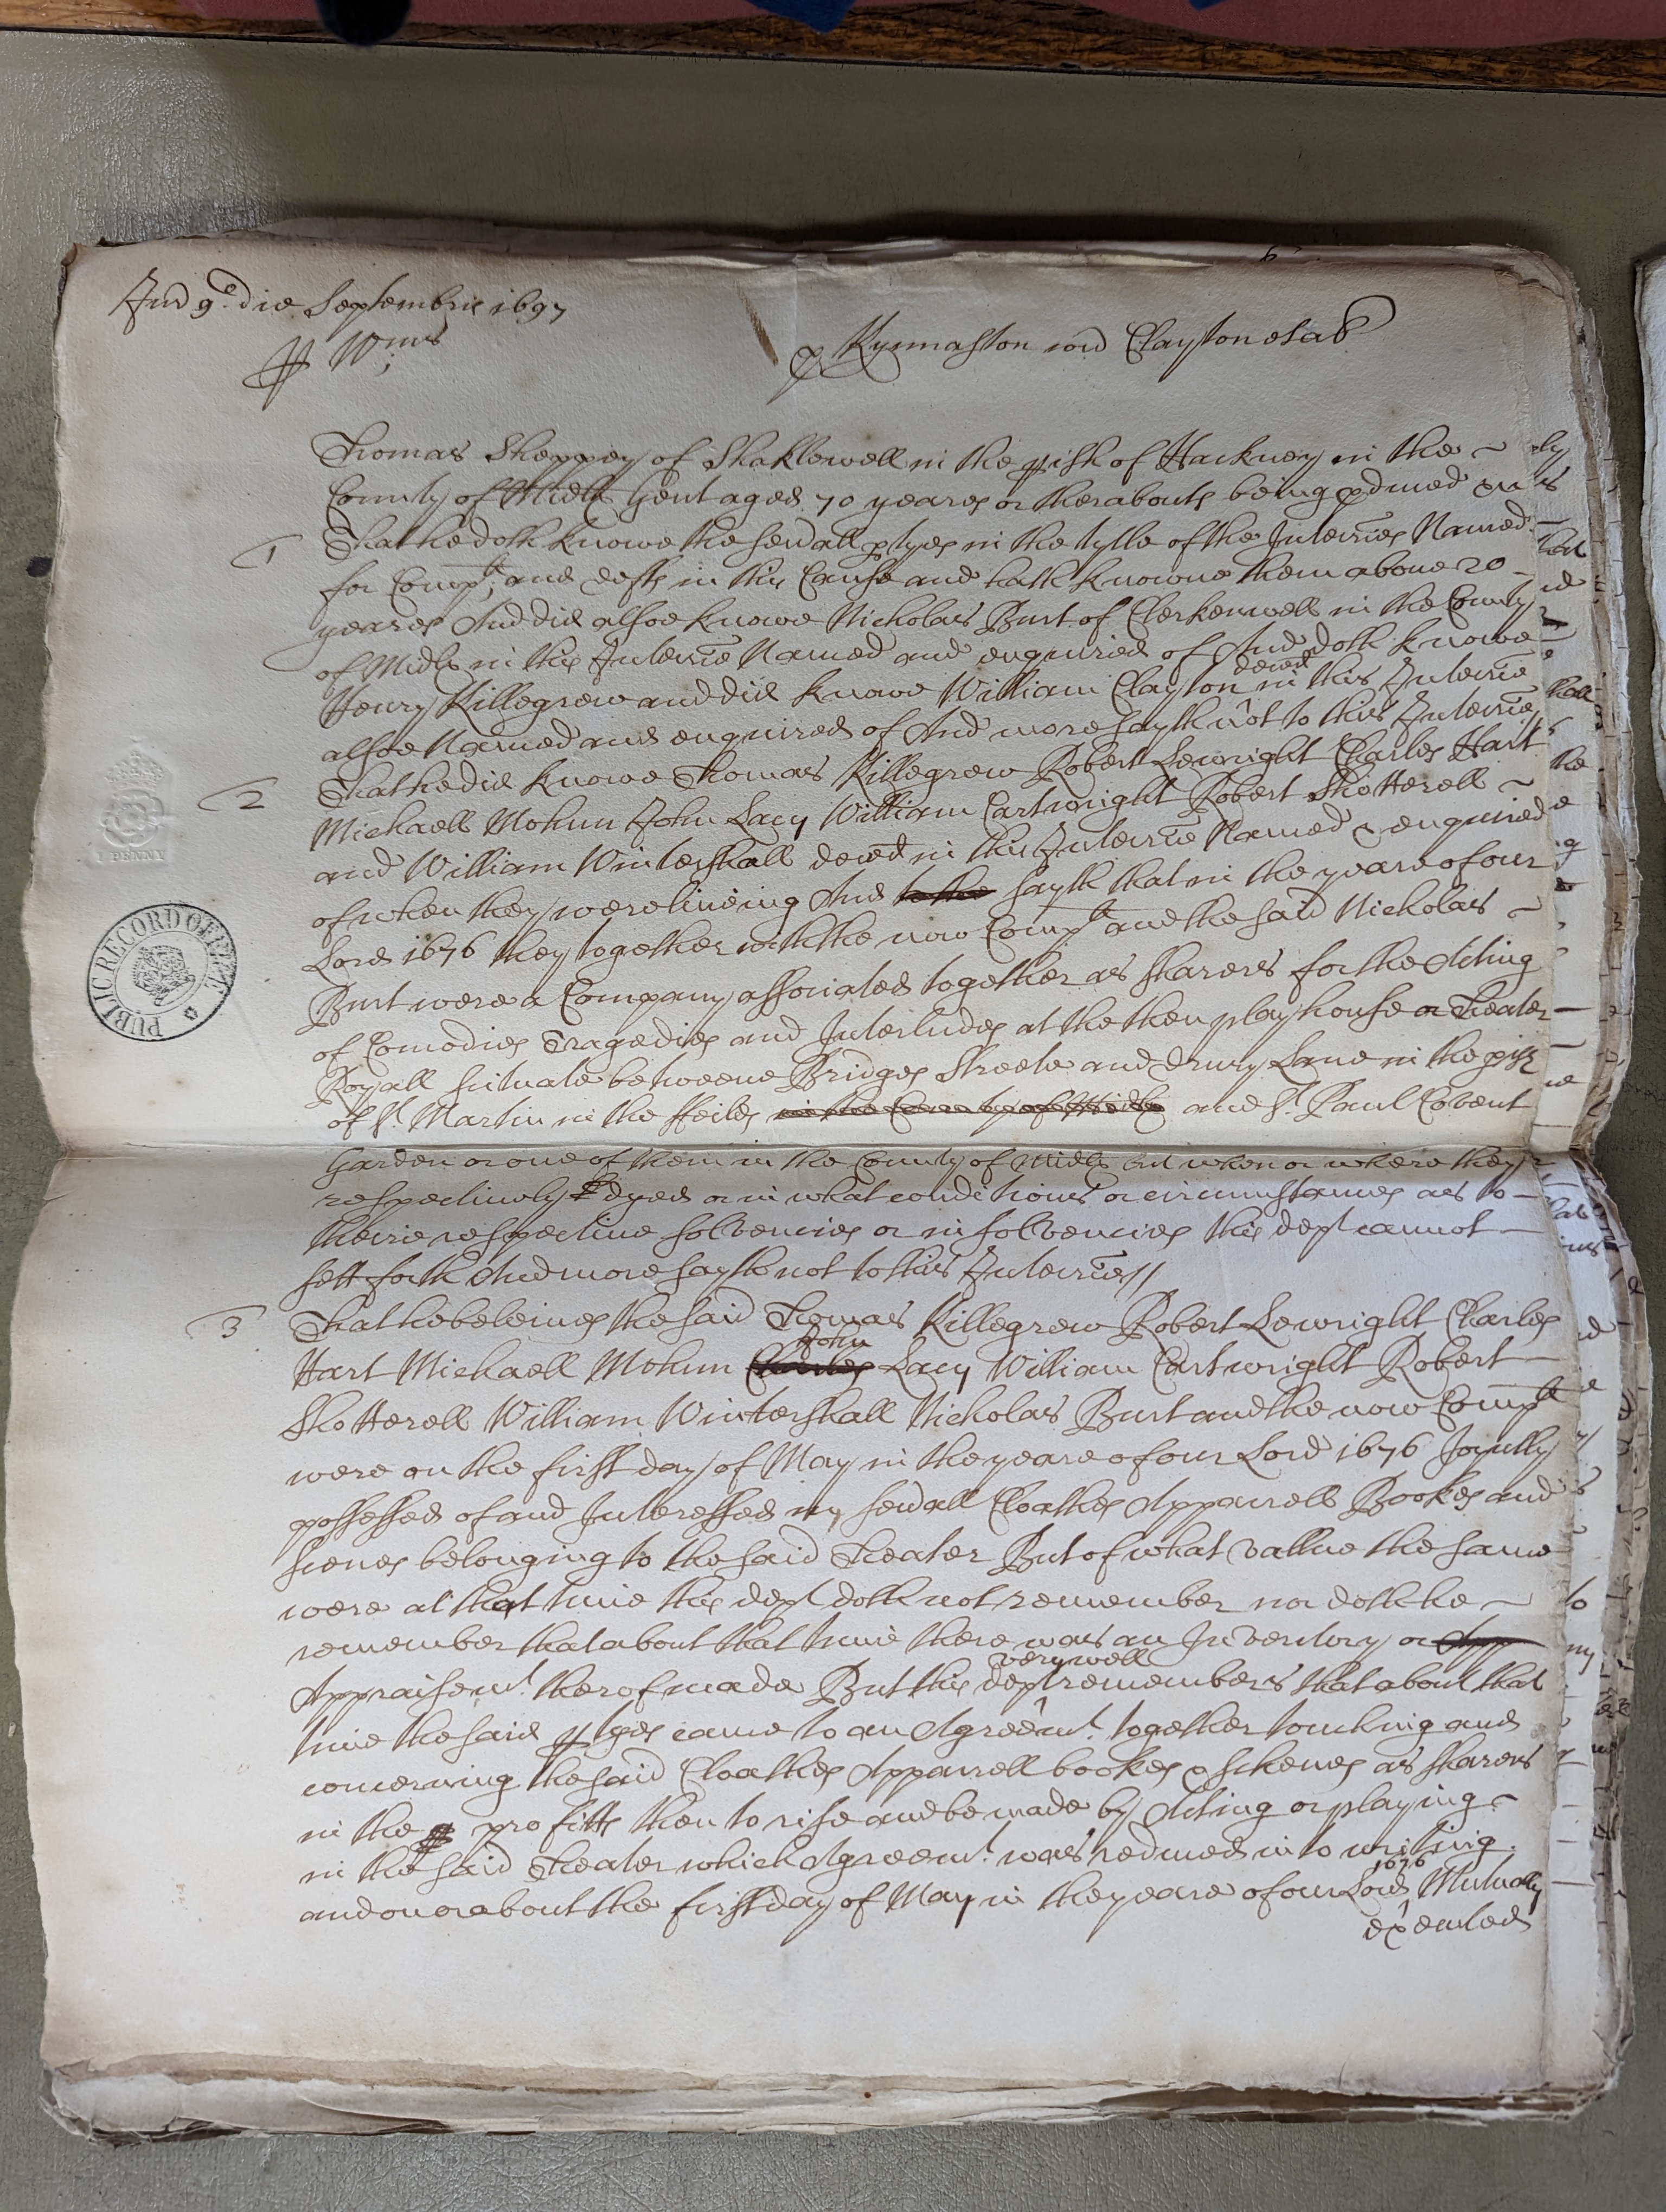 Jur 9o. die Septembris 1697
Wms
p Kynnaston vers Clayton et al
Thomas Sheppey of Shaklewell in the pish of Hackney in the
County of Midds Gent aged 70 yeares or therabouts being pduced &c
1 That he doth knowe the sevall ptyes in the tytle of the Interries Named
for Complt. and defts in this Cause and hath knowne them above 20
yeares And did alsoe knowe Nicholas Burt of Clerkenwell in the County
of Midds in this Interrie Named and enquiried of And doth knowe
Henry Killegrew and did knowe William Clayton deced in this Interrie
alsoe Named and enquired of And more sayth not to this Interrie
2 That he did knowe Thomas Killegrew Robert Lewright Charles Hart
Michaell Mohun John Lacy William Cartwright Robert Shotterell
and William Wintershall deced in this Interrie Named & enquired
of when they were liveing And to the sayth that in the yeare of our
Lord 1676 they together with the now Complt and the said Nicholas
Burt were a Company associated together as sharers for the Acting
of Comodies Tragedies and Interludes at the then playhouse or Theater
Royall scituate betweene Bridges Streete and Drury Lane in the pish
of St. Martin in the ffeilds in the County of Midds and St. Paul Covent
Garden or one of them in the County of Midds but when or where they
respectively dyed or in what conditions or circumstances as to
theire respective solvencies or insolvencies this dept cannot
sett forth And more sayth not to this Interrie //
3 That he beleives the said Thomas Killegrew Robert Lewright Charles
Hart Michaell Mohun Charles John Lacy William Cartwright Robert
Shotterell William Wintershall Nicholas Burt and the now Complt
were on the first day of May in the yeare of our Lord 1676 Joyntly
possessed of and Interessed in sevall Cloathes Apparrell Bookes and
scenes belonging to the said Theater But of what vallue the same
were at that time this dept doth not remember nor doth he
remember that about that time there was an Inventory or App
Appraisemt. therof made But this dept very well remembers that about that
time the said ptyes came to an Agreemt. together touching and
concerning the said Cloathes Apparrell bookes & schenes as sharers
in the profitts then to rise and be made by Acting or playing
in the said Theater which Agreemt. was reduced into writing
and on or about the first day of May in the yeare of our Lord 1676 Mutually
executed
1 PENNY
PUBLIC RECORD OFFICE